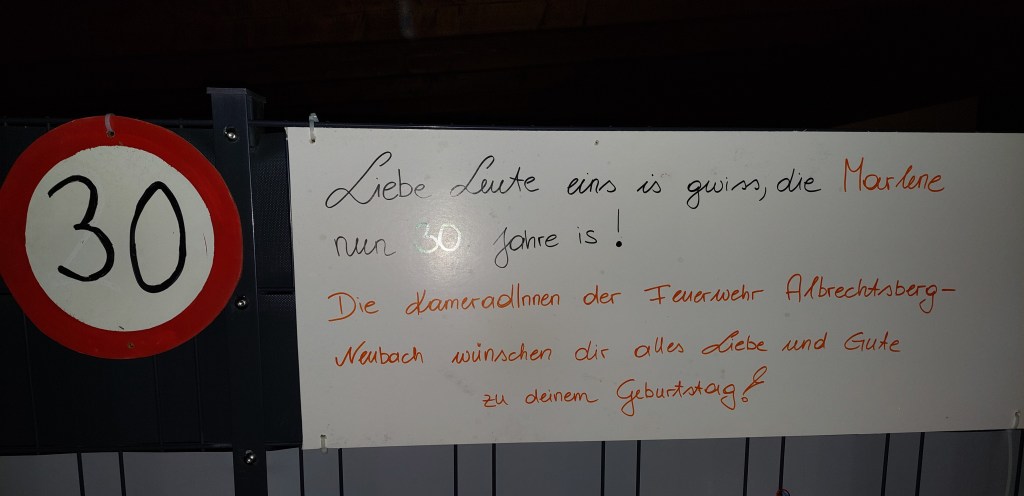 30
Liebe Leute eins is gwiss, die Marlene
nun 30 Jahre is!
Die KameradInnen der Feuerwehr Albrechtsberg-
Neubach wünschen dir alles Liebe und Gute
zu deinem Geburtstag!